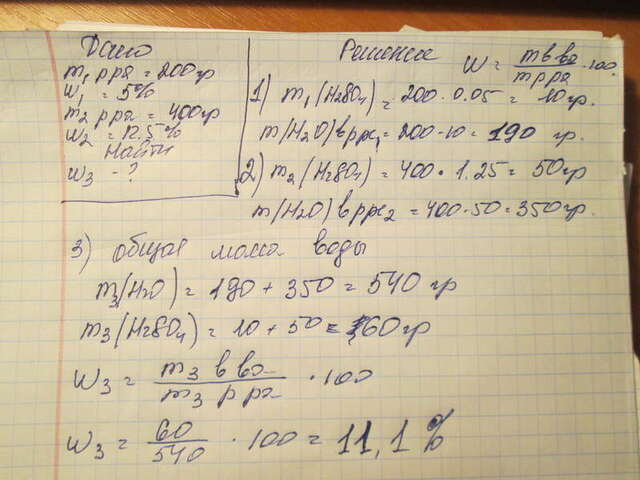 Дано
m₁ р-ра = 200гр
w₁ = 5%
m₂ р-ра = 400гр
w₂ = 12.5%
Найти
w₃ - ?
Решение
W = m в ва / m р ра · 100.
1) m₁(H₂SO₄) = 200 · 0.05 = 10 гр.
m(H₂O) в рре₁ = 200-10 = 190 гр.
2) m₂(H₂SO₄) = 400 · 1.25 = 50 гр
m(H₂O) в рре₂ = 400-50 = 350 гр.
3) общая масса воды
m₃(H₂O) = 190 + 350 = 540 гр
m₃(H₂SO₄) = 10 + 50 = 60 гр
W₃ = m₃ в ва / m₃ р ра · 100
W₃ = 60 / 540 · 100 = 11,1 %